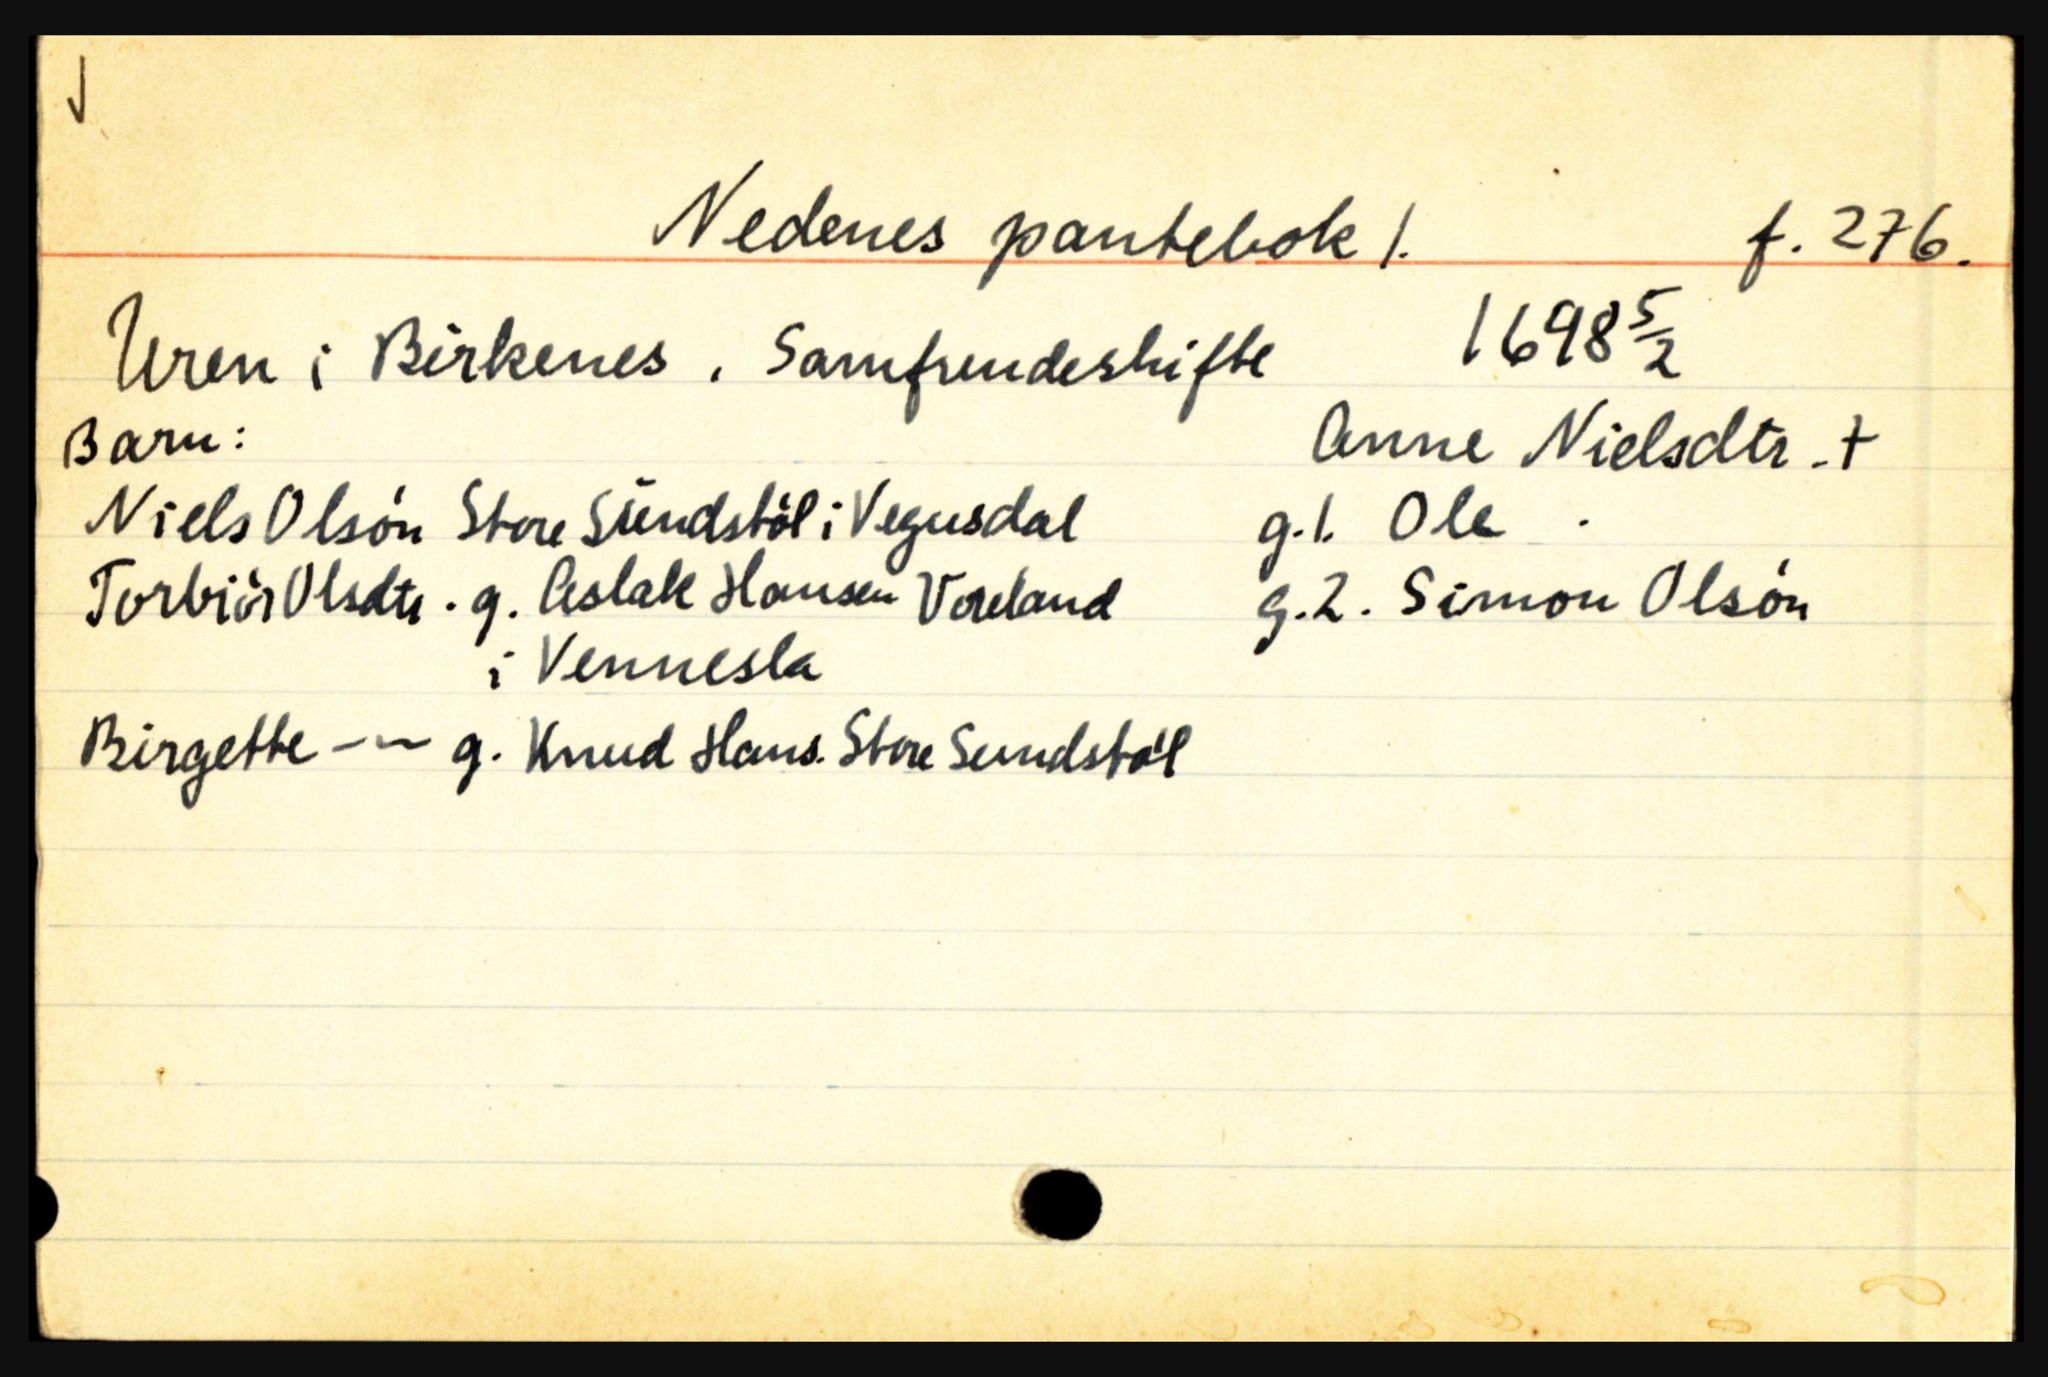 Nedenes pantebok 1. f. 276.
Uren i Birkenes. Samfrendeskifte 1698 5/2
Barn: Anne Nielsdtr. †
Niels Olsón Store Sŭndstöl i Vegusdal g.1. Ole .
Torbiör Olsdtr. g. Aslak Hansen Voreland g.2. Simon Olsón
i Vennesla
Birgette -〜 g. Knud Hans. Store Sundstöl